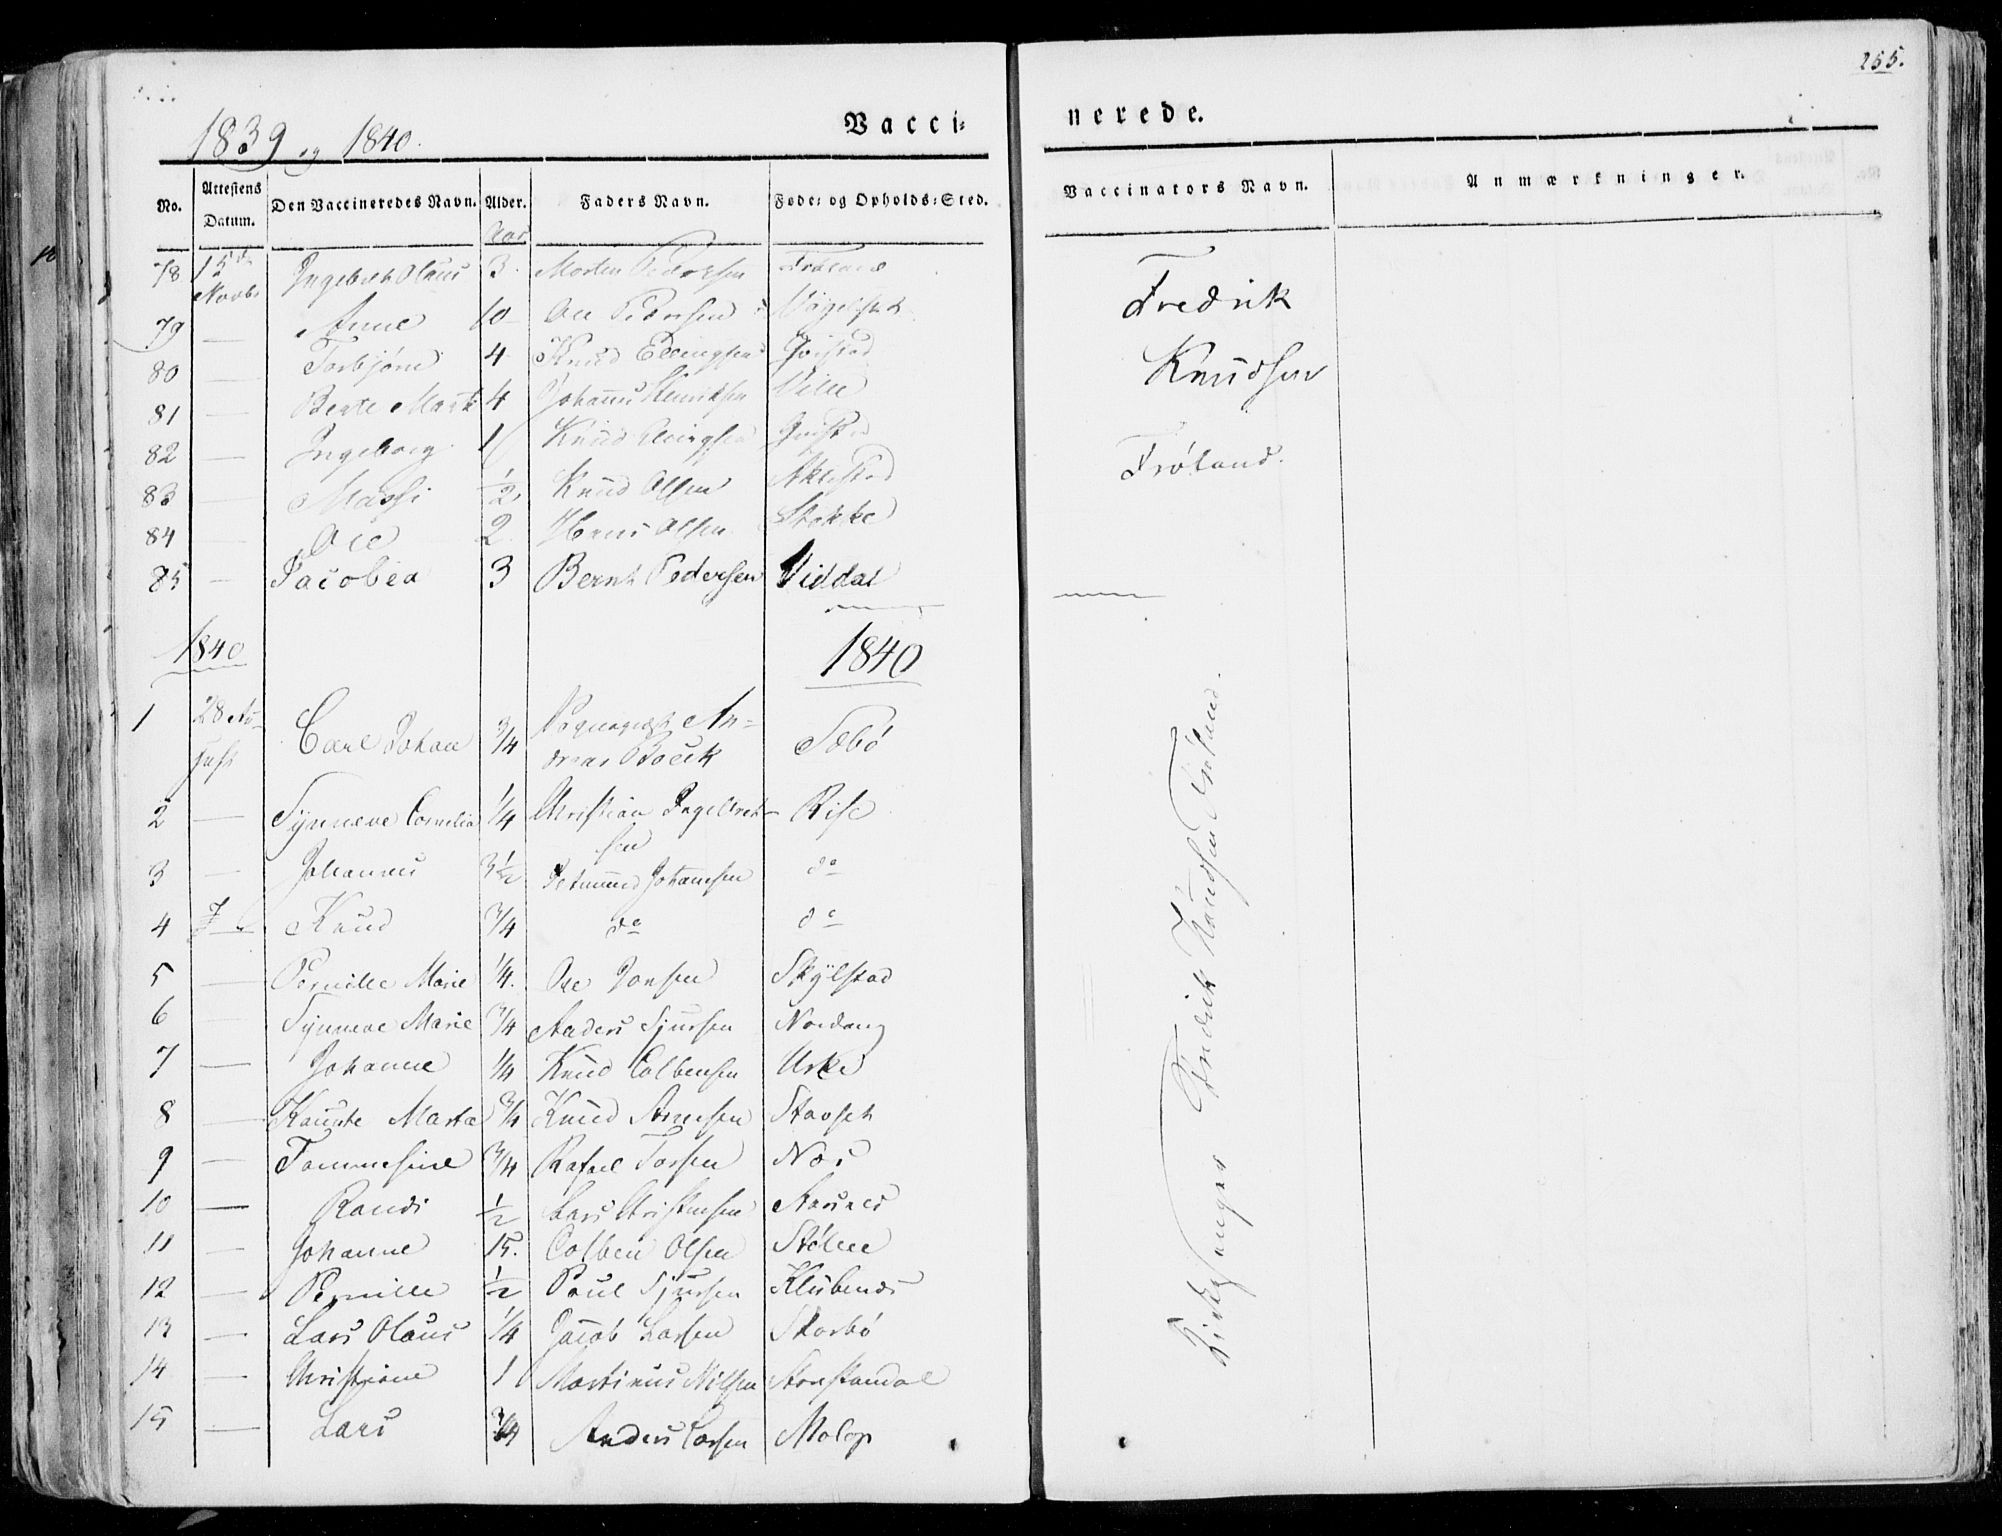 255.
1839 og 1840.
Vacci= nerede.
No. Attestens Datum. Den Vaccineredes Navn. Alder. Faders Navn. Føde= og Opholds=Sted. Vaccinators Navn. Anmærkninger.
Aar
78 15de Novbr Ingebret Olaus 3 Morten Pedersen Frøland
79 — Anne 10 Ole Pedersen
80 — Torbjørn 4 Knud Ellingsen Qvistad
81 — Berte Marte 4 Johannes Henriksen Ville
82 — Ingeborg 1 Knud Ellingsen
83 — Massi 1/2 Knud Olsen Aklestad
84 — Ole 2 Hans Olsen Stokke
85 — Jacobea 3 Bernt Pedersen Viddal
Fredrik
Knudsen
Frøland.
1840 1840
1 28 August Carl Johan 3/4 Sogneprest Andreas Boeck Sæbø
2 — Synneve Cornelia 1/4 Christian Ingebretsen Rise
3 — Johannes 3 1/2 Johansen do
4 — Knud 3/4 do do
5 — Pernille Marie 1/4. Ole Jonsen Skylstad
6 — Synneve Marie 3/4 Anders Sjursen Nordang
7 — Johanne 1/4 Knud Colbensen Urke
8 — Knute Marta 3/4 Knud Arnesen Stavset
9 — Tommesine 3/4 Rafael Torsen Næs
10 — Randi 1/2 Lars Christensen Aarsnes
11 — Johanne 15. Colben Olsen Stølen
12 — Pernille 1/2 Poul Sjursen Klubenes
13 — Lars Olaus 1/4 Jacob Larsen Skorbø
14 — Christiane 1 Martinus Nilsen Storstandal
15 — Lars 3/4 Anders Larsen Molop
Kirkesanger Fredrik Knudsen Frøland.